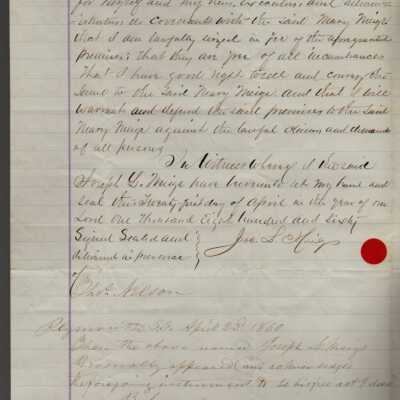 for myself and my heirs, executors and admin-
istrators do Covenant with the said Mary Meigs
that I am lawfully seized in fee of the aforegranted
premises; that they are free of all incumbrances
That I have good right to sell and convey the
same to the said Mary Meigs and that I will
warrant and defend the said premises to the said
Mary Meigs against the lawful claims and demands
of all persons
In Witness Whereof I the said
Joseph L. Meigs have hereunto set my hand and
seal this Twenty first day of April in the year of our
Lord one Thousand Eight hundred and sixty
Signed Sealed and
delivered in presence
of
Jos L Meigs
Thos. Nelson
Plymouth SS. April 23d 1860
Then the above named Joseph L. Meigs
Personally appeared and acknowledged
the foregoing instrument to be his free act & deed